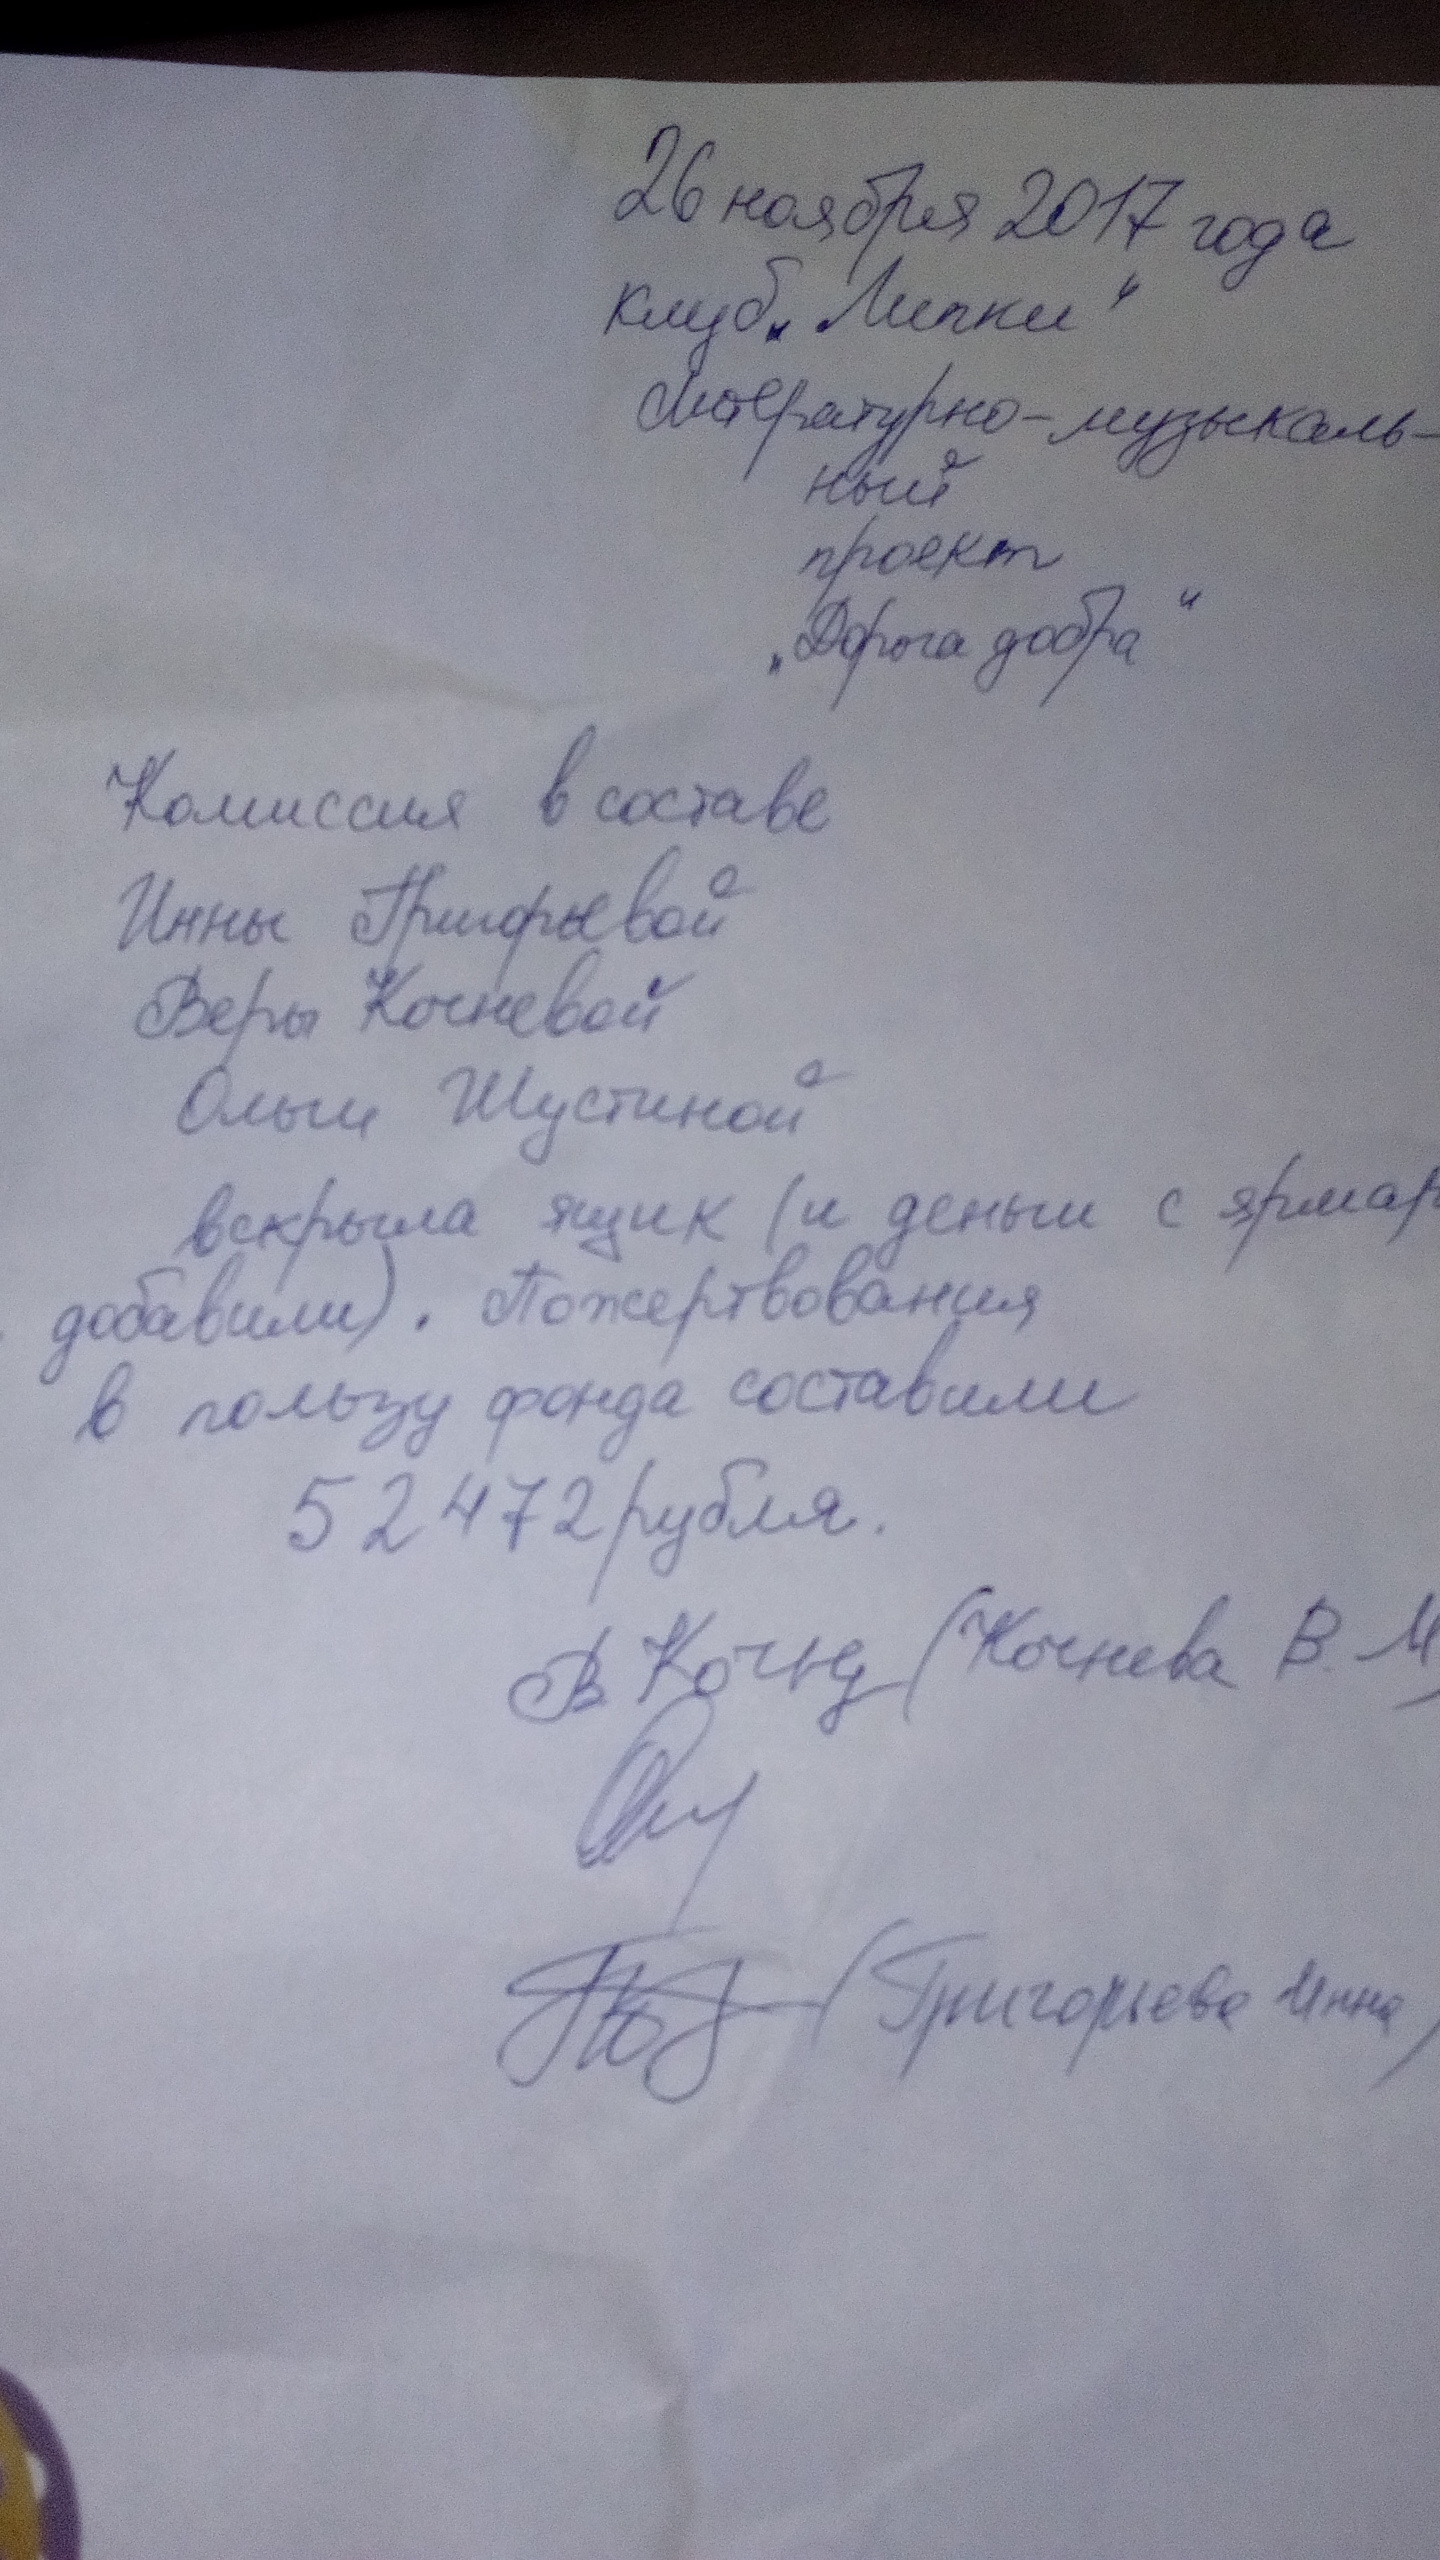 26 ноября 2017 года
клуб „Липки“
Литературно-музыкаль-
ный
проект
„Дорога добра“
Комиссия в составе
Инны Григорьевой
Веры Кочневой
Ольги Шустиной
вскрыла ящик (и деньги с ярмар
добавили). Пожертвования
в пользу фонда составили
52472 рубля.
(Кочнева В. М
(Григорьева Инна)